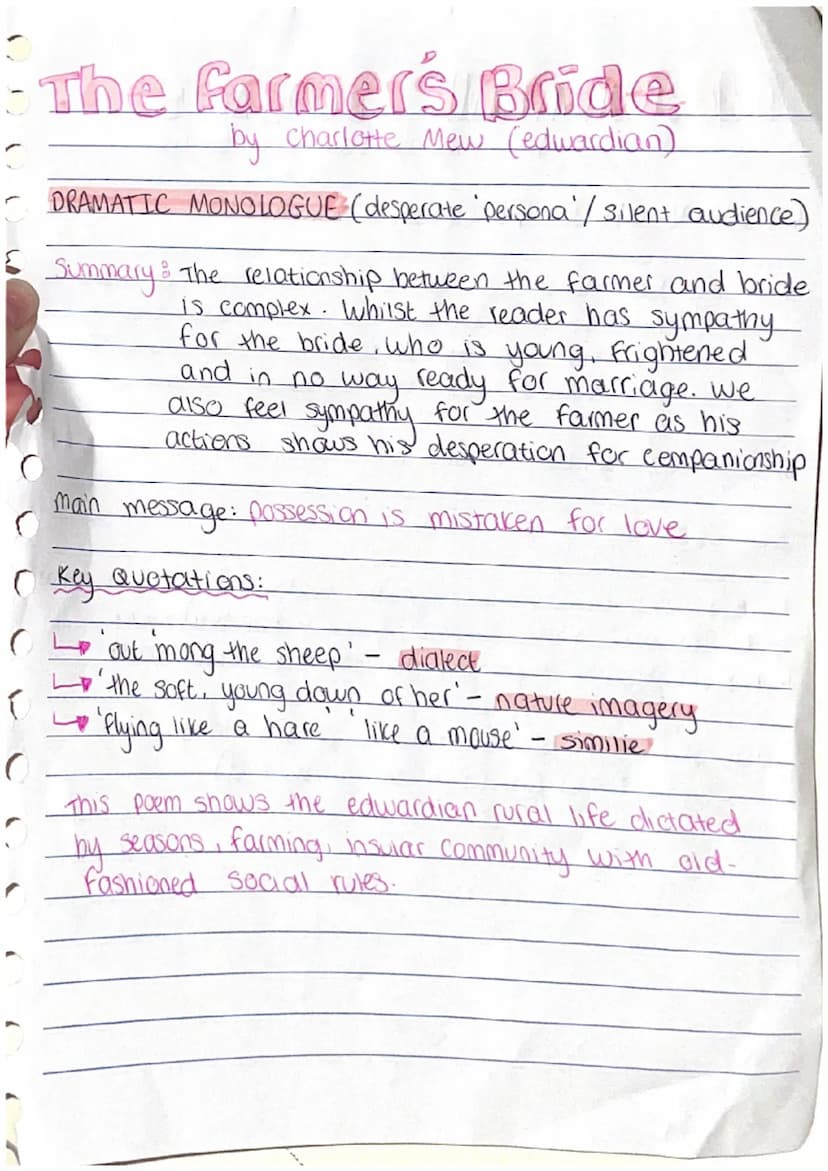 The Farmer's Bride
by Charlotte Mew (edwardian)
DRAMATIC MONOLOGUE (desperate 'persona' / silent audience)
Summary: The relationship between the farmer and bride
is complex. Whilst the reader has sympathy
for the bride, who is young, frightened
and in no way ready for marriage. We
also feel sympathy for the farmer as his
actions shows his desperation for companionship
main message: possession is mistaken for love
Key Quotations:
↳ 'out 'mong the sheep' - dialect
↳ 'the soft, young down of her' - nature imagery
↳ 'flying like a hare' 'like a mouse' - similie
This poem shows the edwardian rural life dictated
by seasons, farming, insular community with old-
fashioned social rules.